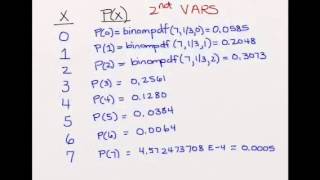 X P(X) 2nd VARS
0 P(0) = binompdf(7,1/3,0) = 0.0585
1 P(1) = binompdf(7,1/3,1) = 0.2048
2 P(2) = binompdf(7,1/3,2) = 0.3073
3 P(3) = 0.2561
4 P(4) = 0.1280
5 P(5) = 0.0384
6 P(6) = 0.0064
7 P(7) = 4.572473708 E-4 = 0.0005